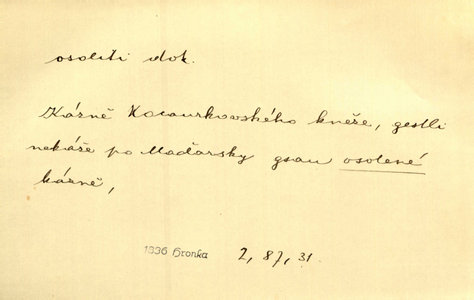 osoliti dok.
Kázně Kocaurkovského kněze, gestli
nekáže po Maďarsky gsau osolené
kázně,
1836 Hronka 2, 87, 31.